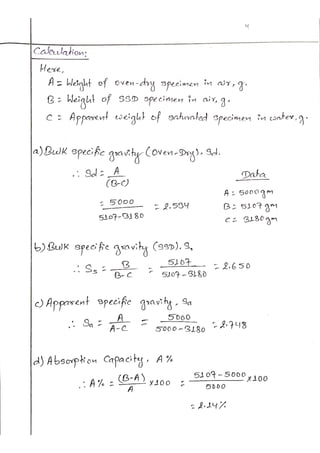 Calculation:
Here,
A = Weight of oven-dry specimen in air, g.
B = Weight of SSD specimen in air, g.
C = Apparent weight of saturated specimen in water, g.
a) Bulk specific gravity (Oven-Dry). Sd.
∴ Sd = A / (B-C)
= 5000 / 5107-3180 = 2.594
Data
A = 5000 gm
B = 5107 gm
C = 3180 gm
b) Bulk specific gravity (SSD). Ss
∴ Ss = B / B-C = 5107 / 5107-3180 = 2.650
c) Apparent specific gravity. Sa
∴ Sa = A / A-C = 5000 / 5000-3180 = 2.748
d) Absorption Capacity. A %
∴ A% = (B-A) / A x100 = 5107-5000 / 5000 x100
= 2.14%